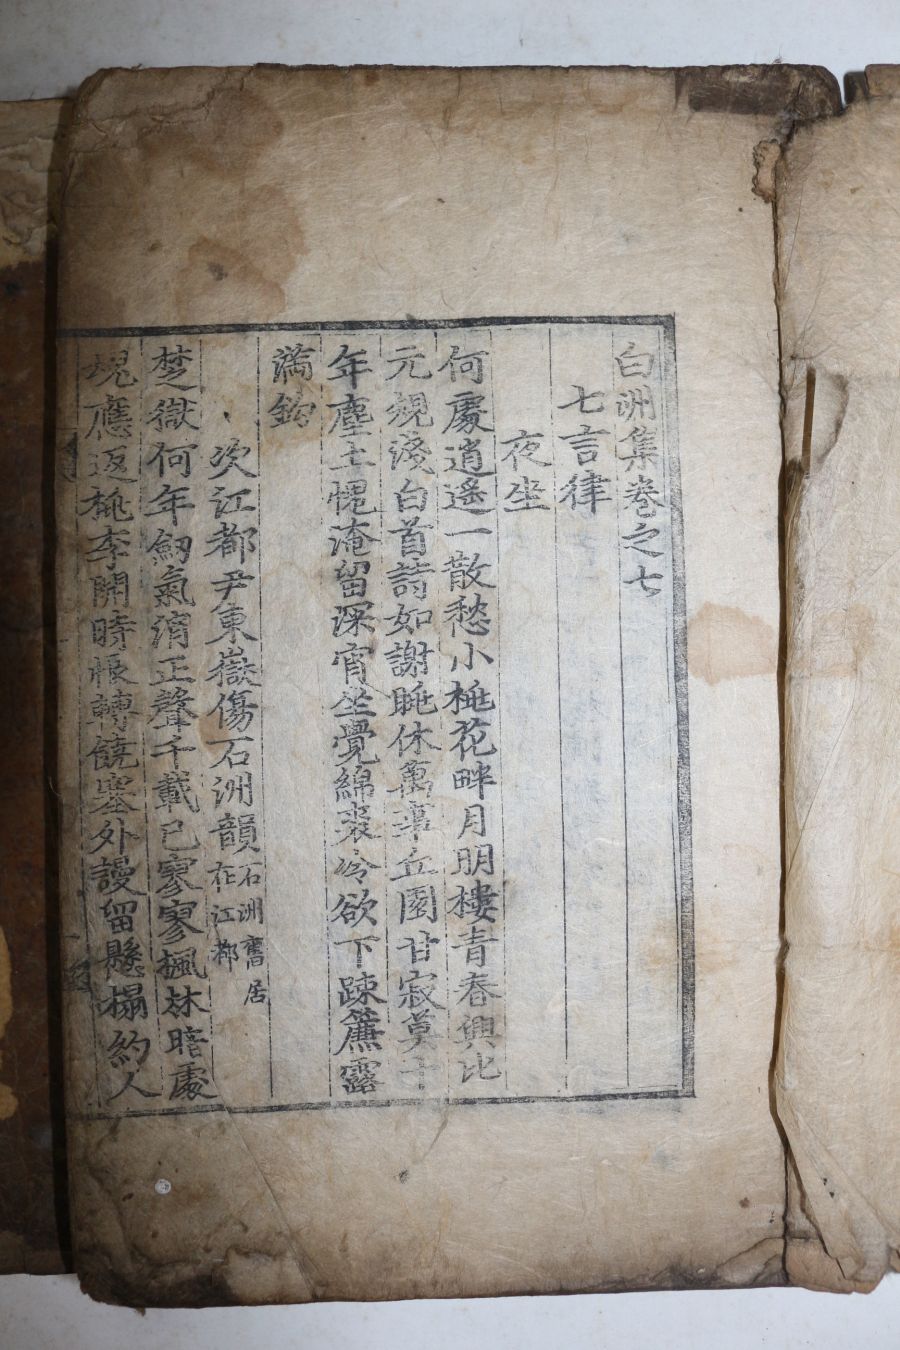 白洲集卷之七
七言律
夜坐
何處逍遙一散愁小桃花畔月明樓青春興比
元規淺白首詩如謝朓休萬事丘園甘寂寞十
年塵土愧淹留深宵坐覺綿裘冷欲下踈簾露
滿鉤
次江都尹東嶽傷石洲韻石洲舊居在江都
楚獄何年劒氣消正聲千載已寥寥楓林暗處
魂應返桃李開時恨轉饒塞外謾留懸榻約人